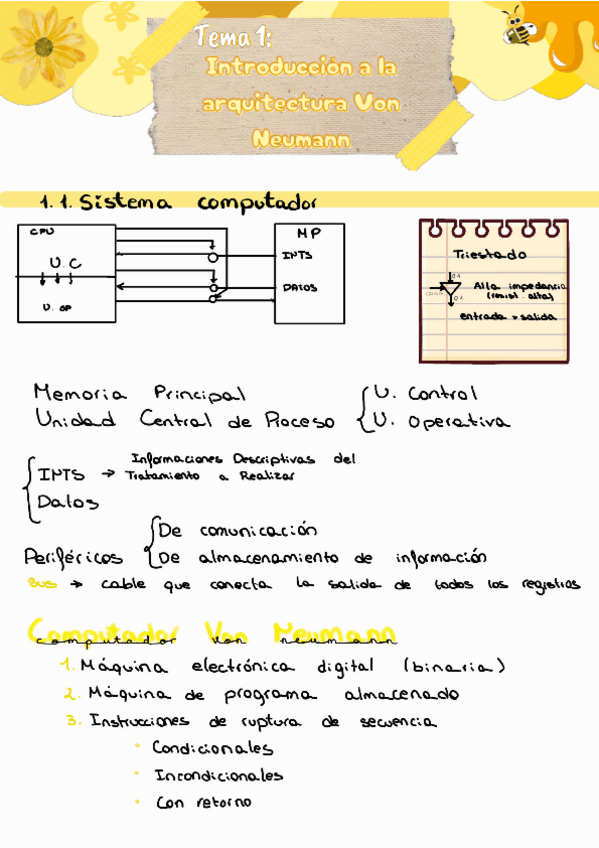 Tema 1:
Introducción a la
arquitectura Von
Neumann
1.1. Sistema computador
CPU
U.C
U. OP
MP
INTS
DATOS
Triestado
Alta impedancia
(resist. alta)
entrada = salida
Memoria Principal
Unidad Central de Proceso { U. Control
U. Operativa
INTS → Informaciones Descriptivas del
Tratamiento a Realizar
Datos
Periféricos { De comunicación
De almacenamiento de información
Bus → cable que conecta la salida de todos los registros
Computador Von Neumann
1. Máquina electrónica digital (binaria)
2. Máquina de programa almacenado
3. Instrucciones de ruptura de secuencia
• Condicionales
• Incondicionales
• Con retorno